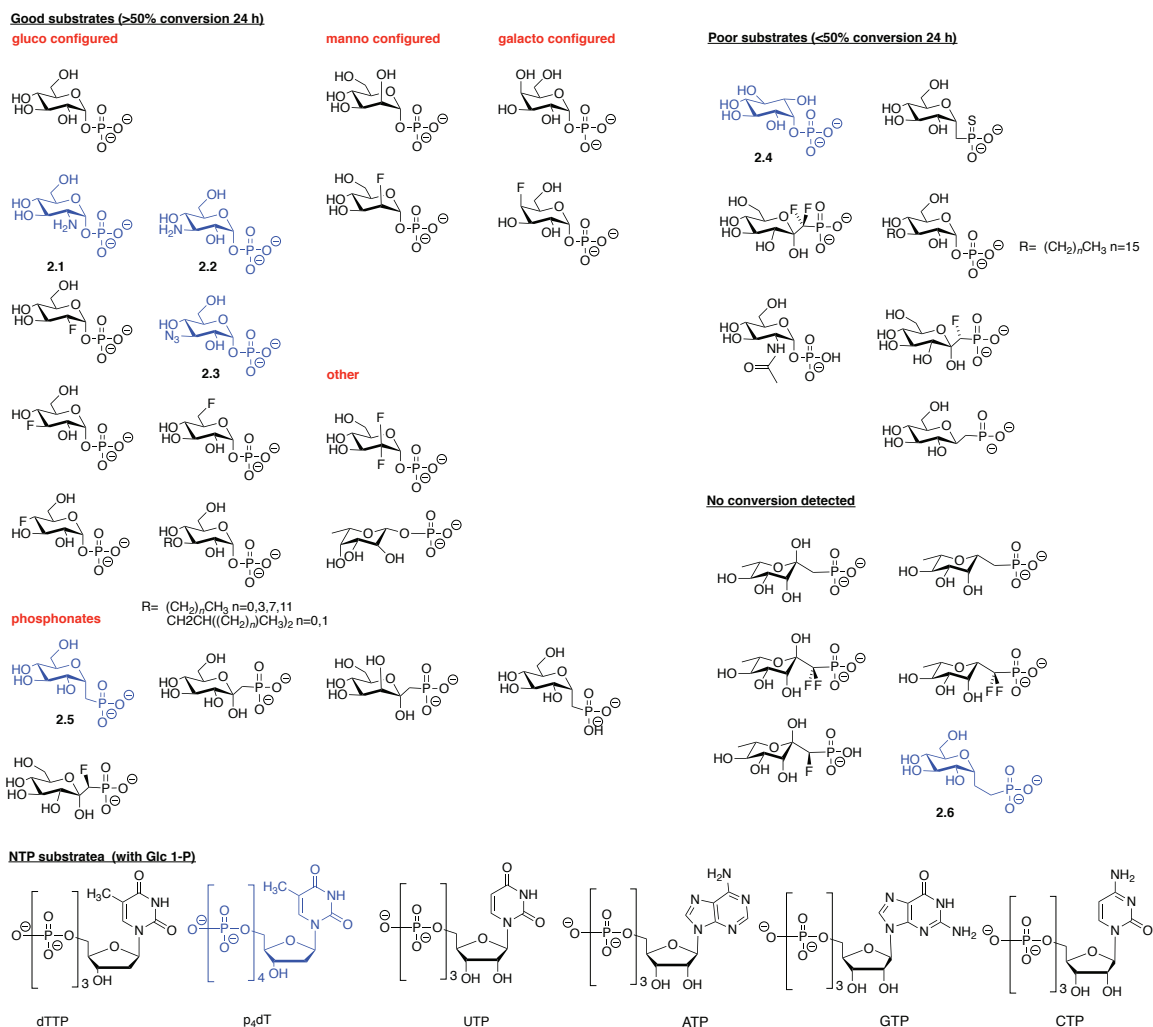 Good substrates (>50% conversion 24 h)
gluco configured
manno configured
galacto configured
Poor substrates (<50% conversion 24 h)
2.4
2.1
2.2
R= (CH2)nCH3 n=15
2.3
other
No conversion detected
phosphonates
R= (CH2)nCH3 n=0,3,7,11
CH2CH((CH2)n)CH3)2 n=0,1
2.5
2.6
NTP substratea (with Glc 1-P)
dTTP
p4dT
UTP
ATP
GTP
CTP